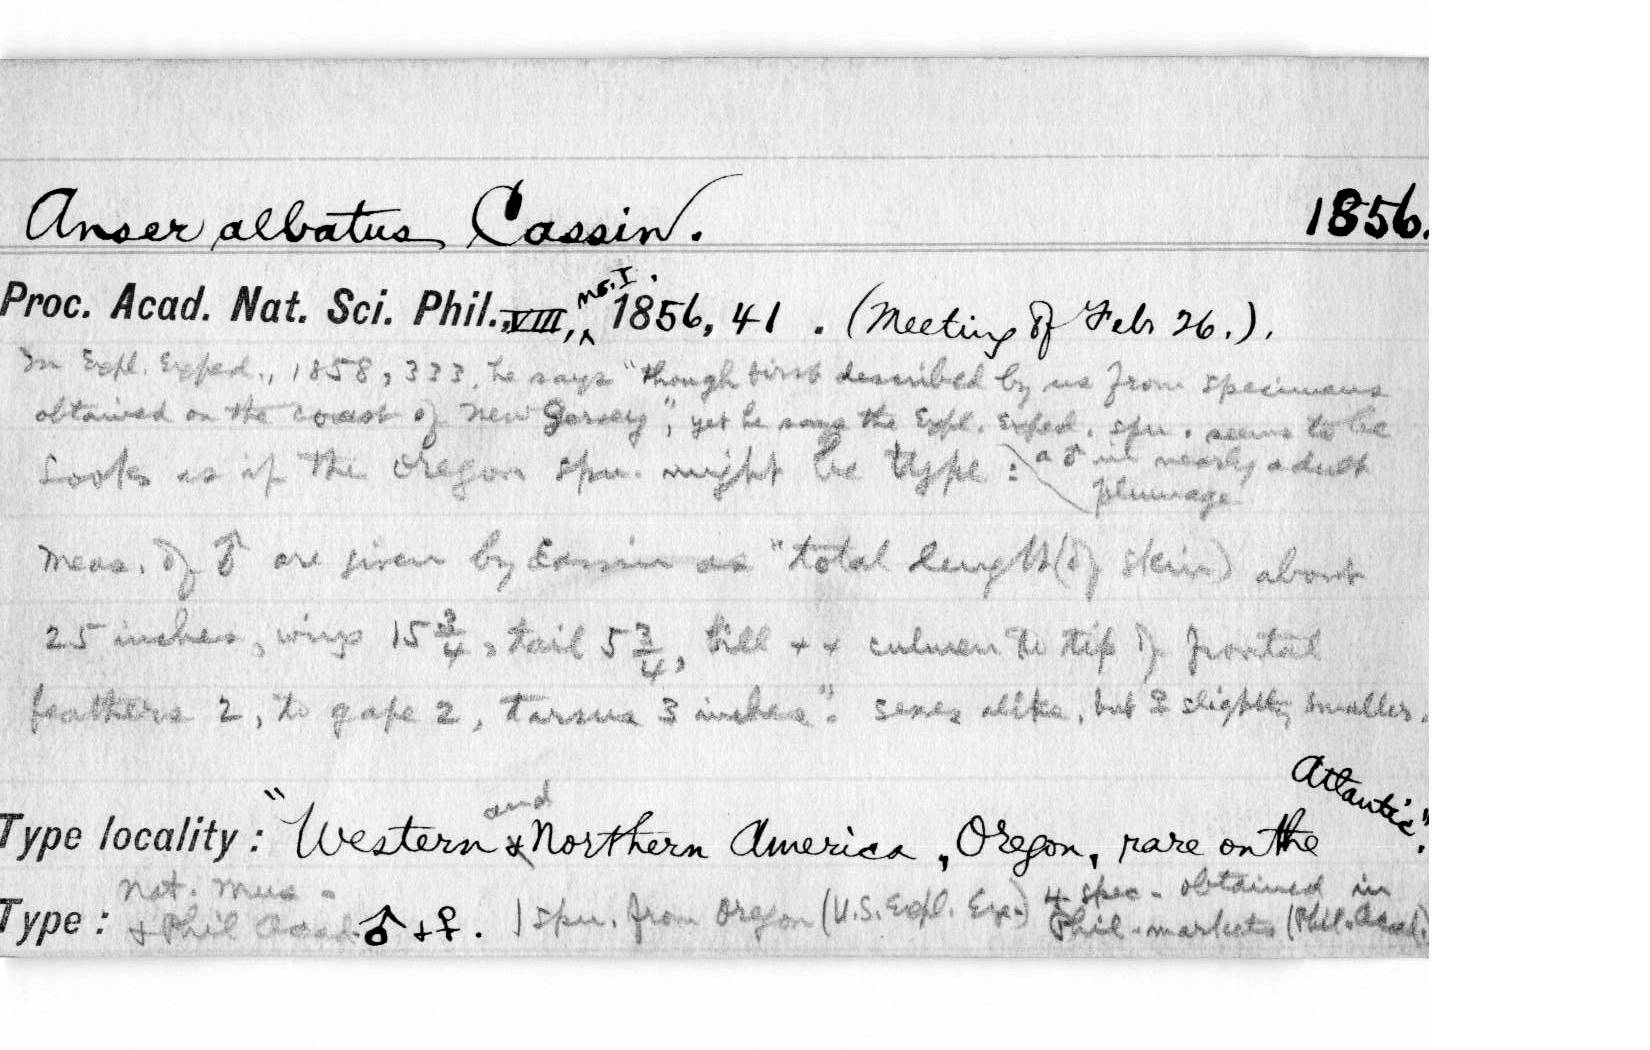 Anser albatus Cassin. 1856.
Proc. Acad. Nat. Sci. Phil., VIII, no. I. 1856, 41. (Meeting of Feb 26.).
In Expl. Exped., 1858, 333, he says "though first described by us from specimens
obtained on the coast of New Jersey", yet he says the Expl. Exped. spm. seems to be
Looks as if the Oregon spm. might be type: a ♂ in nearly adult
plumage
Meas. of ♂ are given by Cassin as "total length (of skin) about
25 inches, wing 15 3/4, tail 5 3/4, bill + + culmen to tip of frontal
feathers 2, to gape 2, tarsus 3 inches". sexes alike, but ♀ slightly smaller.
Type locality: "Western & and Northern America, Oregon, rare on the Atlantic".
Type: Nat. Mus. + Phil Acad. ♂ + ♀. 1 spm. from Oregon (U.S. Expl. Exp.) 4 spec. obtained in
Phil. markets (Phil. Acad.)